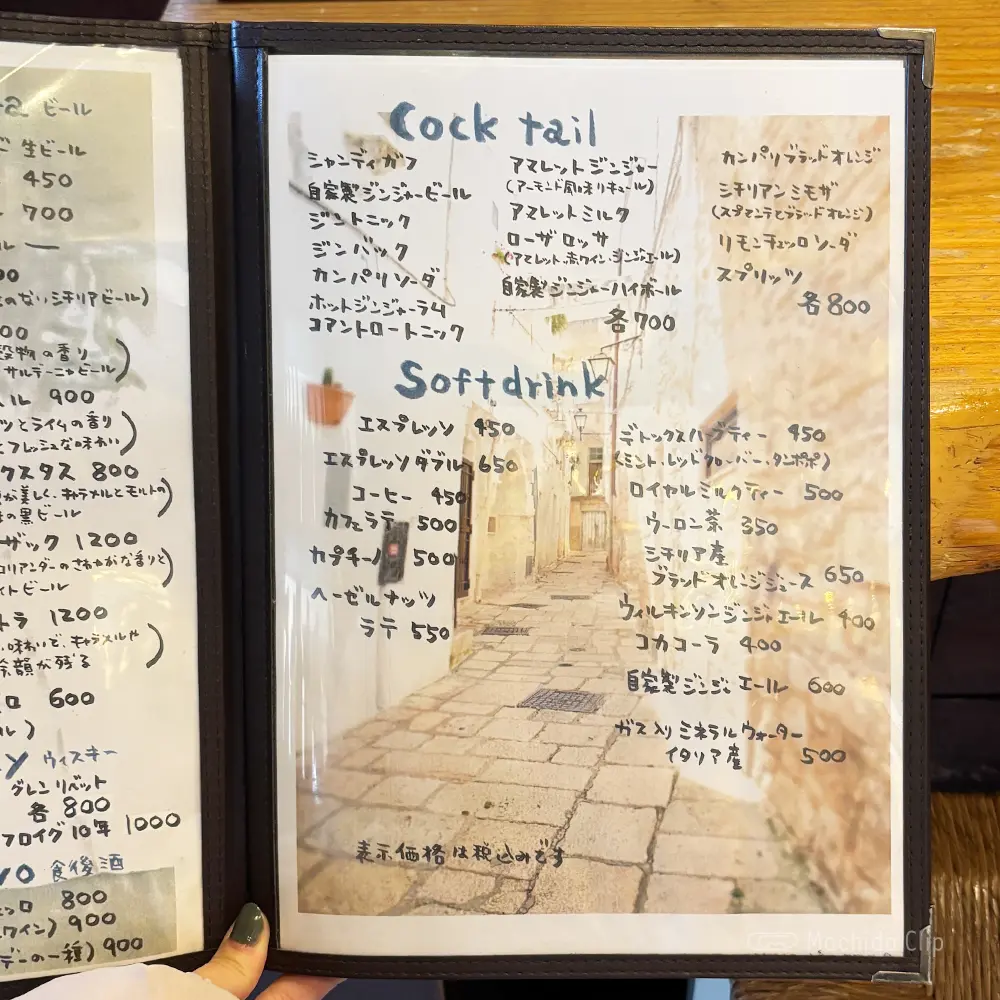 ビール
生ビール
450
700
ル ー
00
のないシチリアビール)
00
穀物の香り
サルデーニャビール)
ル 900
ツとライムの香り
フレッシュな味わい)
クスタス 800
が美しく、キャラメルとモルトの
の黒ビール
ザック 1200
コリアンダーのさわやかな香りと
イトビール
トラ 1200
味わいで、キャラメルや
余韻が残る
ロ 600
ル)
y ウィスキー
グレンリベット
各 800
フロイグ10年 1000
vo 食後酒
800
ワイン) 900
デーの一種) 900
Cock tail
シャンディガフ
自家製ジンジャービール
ジントニック
ジンバック
カンパリソーダ
ホットジンジャーラム
コアントロートニック
アマレットジンジャー
(アーモンド風味リキュール)
アマレットミルク
ローザロッサ
(アマレット、赤ワイン、ジンジャエール)
自家製ジンジャーハイボール
各700
カンパリブラッドオレンジ
シチリアンミモザ
(スプマンテとブラッドオレンジ)
リモンチェッロソーダ
スプリッツ
各800
Softdrink
エスプレッソ 450
エスプレッソダブル 650
コーヒー 450
カフェラテ 500
カプチーノ 500
ヘーゼルナッツ
ラテ 550
デトックスハーブティー 450
(ミント、レッドクローバー、タンポポ)
ロイヤルミルクティー 500
ウーロン茶 350
シチリア産
ブラッドオレンジジュース 650
ウィルキンソンジンジャエール 400
コカコーラ 400
自家製ジンジャエール 600
ガス入りミネラルウォーター
イタリア産 500
表示価格は税込みです
Machida Clip